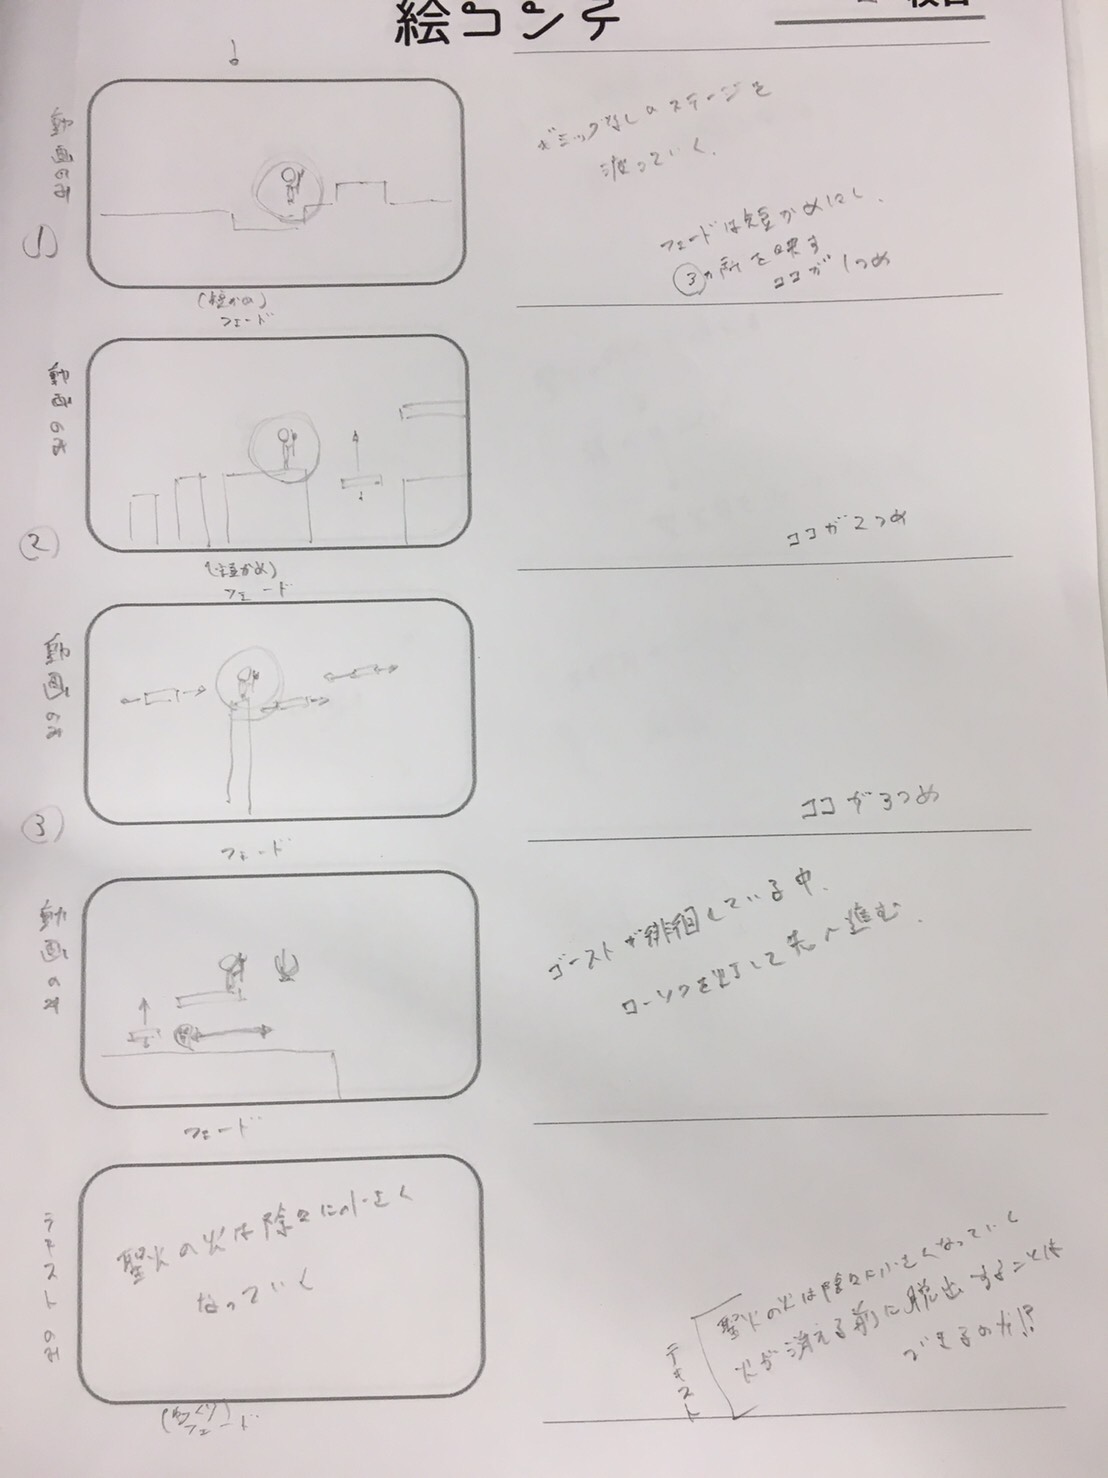 絵コンテ
枚目
動画のみ
ギミックなしのステージを
渡っていく.
フェードは短かめにし.
③の所を映す
ココが1つめ
(短かめ)
フェード
動画のみ
②
ココが2つめ
(短かめ)
フェード
動画のみ
③
ココが3つめ
フェード
動画のみ
ゴーストが徘徊している中.
ローソクを灯して先へ進む.
フェード
テキストのみ
聖火の火は除々に小さく
なっていく
テキスト
聖火の火は除々に小さくなっていく
火が消える前に脱出することは
できるのか!?
フェード